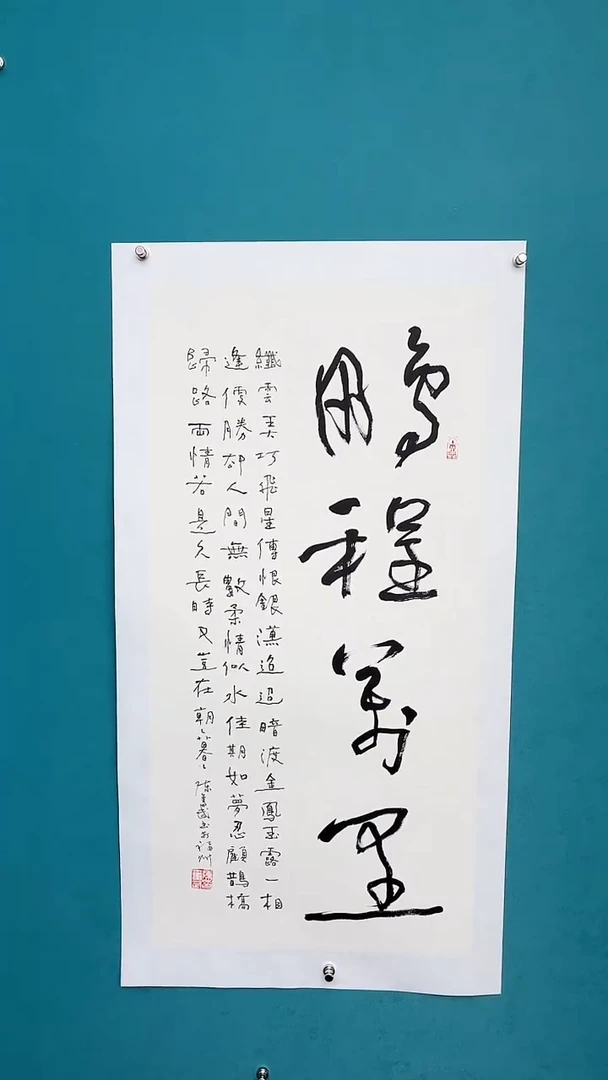 鵬程萬里
纖雲弄巧飛星傳恨銀漢迢迢暗渡金鳳玉露一相
逢便勝却人間無數柔情似水佳期如夢忍顧鵲橋
歸路兩情若是久長時又豈在朝〻暮〻
書於福州